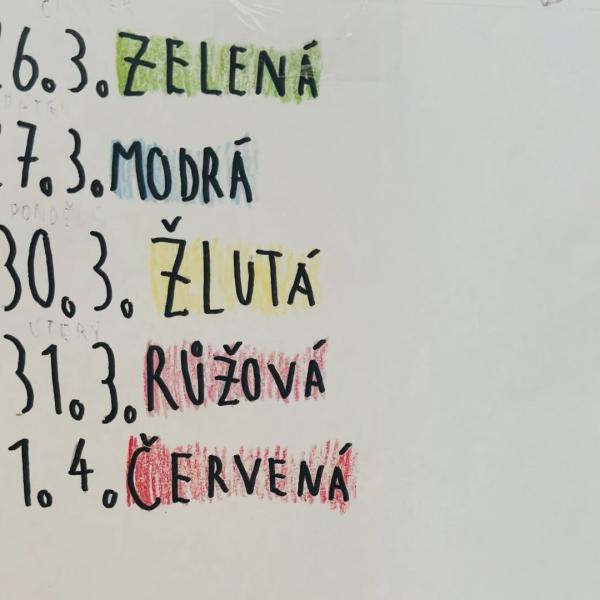 26.3. ZELENÁ
27.3. MODRÁ
30.3. ŽLUTÁ
ÚTERÝ
31.3. RŮŽOVÁ
1.4. ČERVENÁ